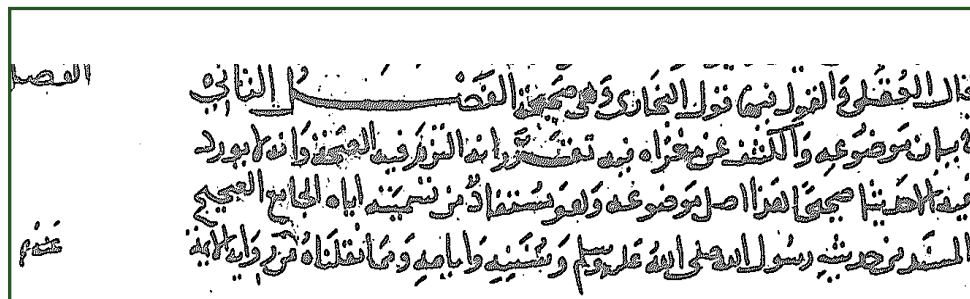 الفصل
قال العقيلي والقول فيها قول البخاري وهي صحيحة الفصل الثاني
في بيان موضوعه والكشف عن مغزاه فيه تقرر انه التزم فيه الصحة وانه لا يورد
فيه الا حديثا صحيحا هذا اصل موضوعه وهو مستفاد من تسميته اياه الجامع الصحيح
المسند من حديث رسول الله صلى الله عليه وسلم وسننه وايامه ومما نقلناه من رواية الايمة